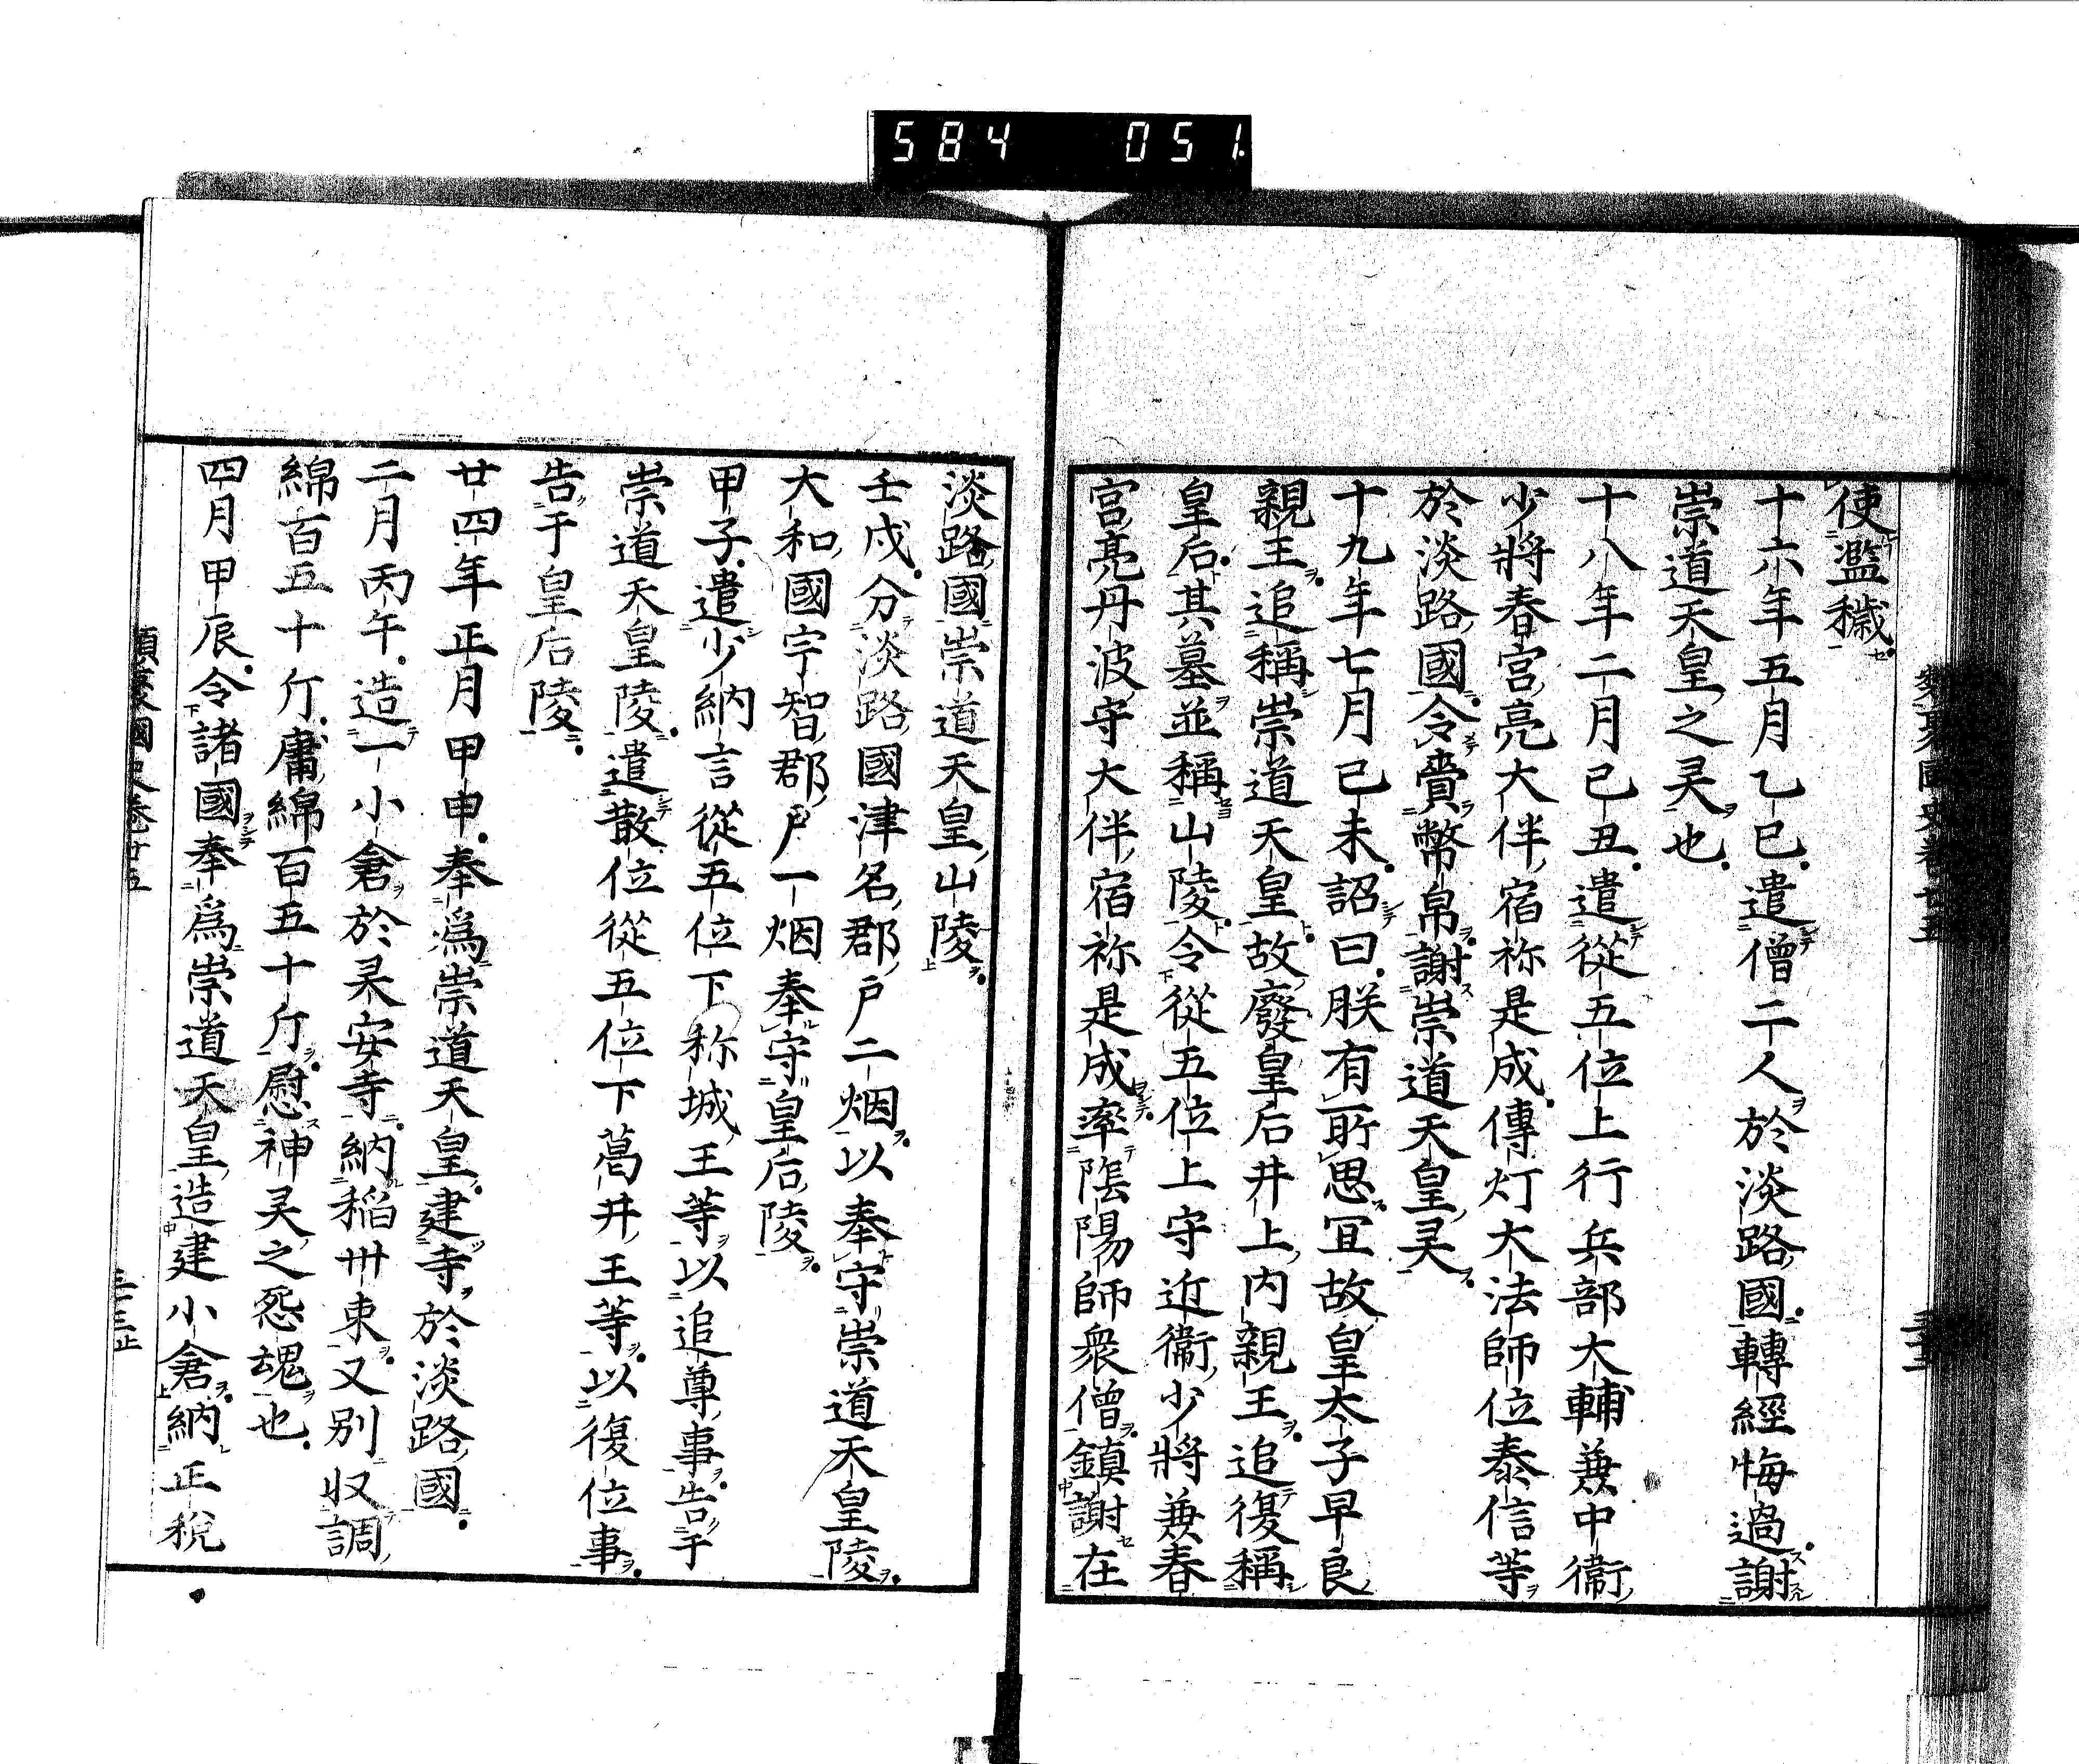 584 051
使濫穢
十六年五月乙巳遣僧二人於淡路國轉經悔過謝
崇道天皇之灵也
十八年二月己丑遣從五位上行兵部大輔兼中衞
少將春宮亮大伴宿祢是成傳灯大法師位泰信等
於淡路國令賷幣帛謝崇道天皇灵
十九年七月己未詔曰朕有所思冝故皇太子早良
親王追稱崇道天皇故廢皇后井上内親王追復稱
皇后其墓並稱山陵令從五位上守近衞少將兼春
宮亮丹波守大伴宿祢是成率陰陽師衆僧鎮謝在
淡路國崇道天皇山陵
壬戌分淡路國津名郡戸二烟以奉守崇道天皇陵
大和國宇智郡戸一烟奉守皇后陵
甲子遣少納言從五位下称城王等以追尊事告于
崇道天皇陵遣散位從五位下葛井王等以復位事
告于皇后陵
廿四年正月甲申奉爲崇道天皇建寺於淡路國
二月丙午造一小倉於灵安寺納稲卅束又別収調
綿百五十斤庸綿百五十斤慰神灵之怨魂也
四月甲辰令諸國奉爲崇道天皇造建小倉納正税
類聚國史卷廿五